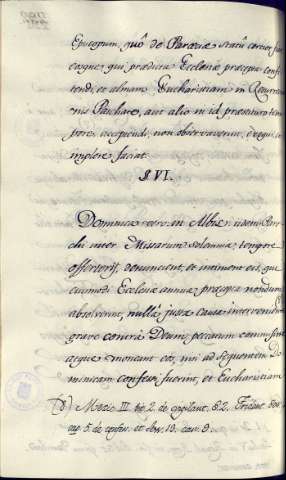 Episcopum, quô de Parœciæ statû certior fiat
eosque, qui prædicta Ecclesiæ præcepta confi-
tendi, et almam Eucharistiam in Resurrectio-
nis Paschate, aut alio ni id præstituto tem-
pore accipiendi, non observaverint,
implere faciat.
§. VI.
Dominica vero in Albis, idem Paro-
chi inter Missarum solemnia, tempore
offertorij, denuncient, et
eiusmodi Ecclesiæ annua præcepta nondum
absolverint, nullâ justa causâ interveniente
grave contra Deum peccatum commisisse
atque moneant eos, ni ad sequentem Do-
minicam confessi fuerint, et Eucharistiam
III. tit. 2. de 6.2. Trident. Sess.
cap. 5. de confess. et sess. 13. can. 9.